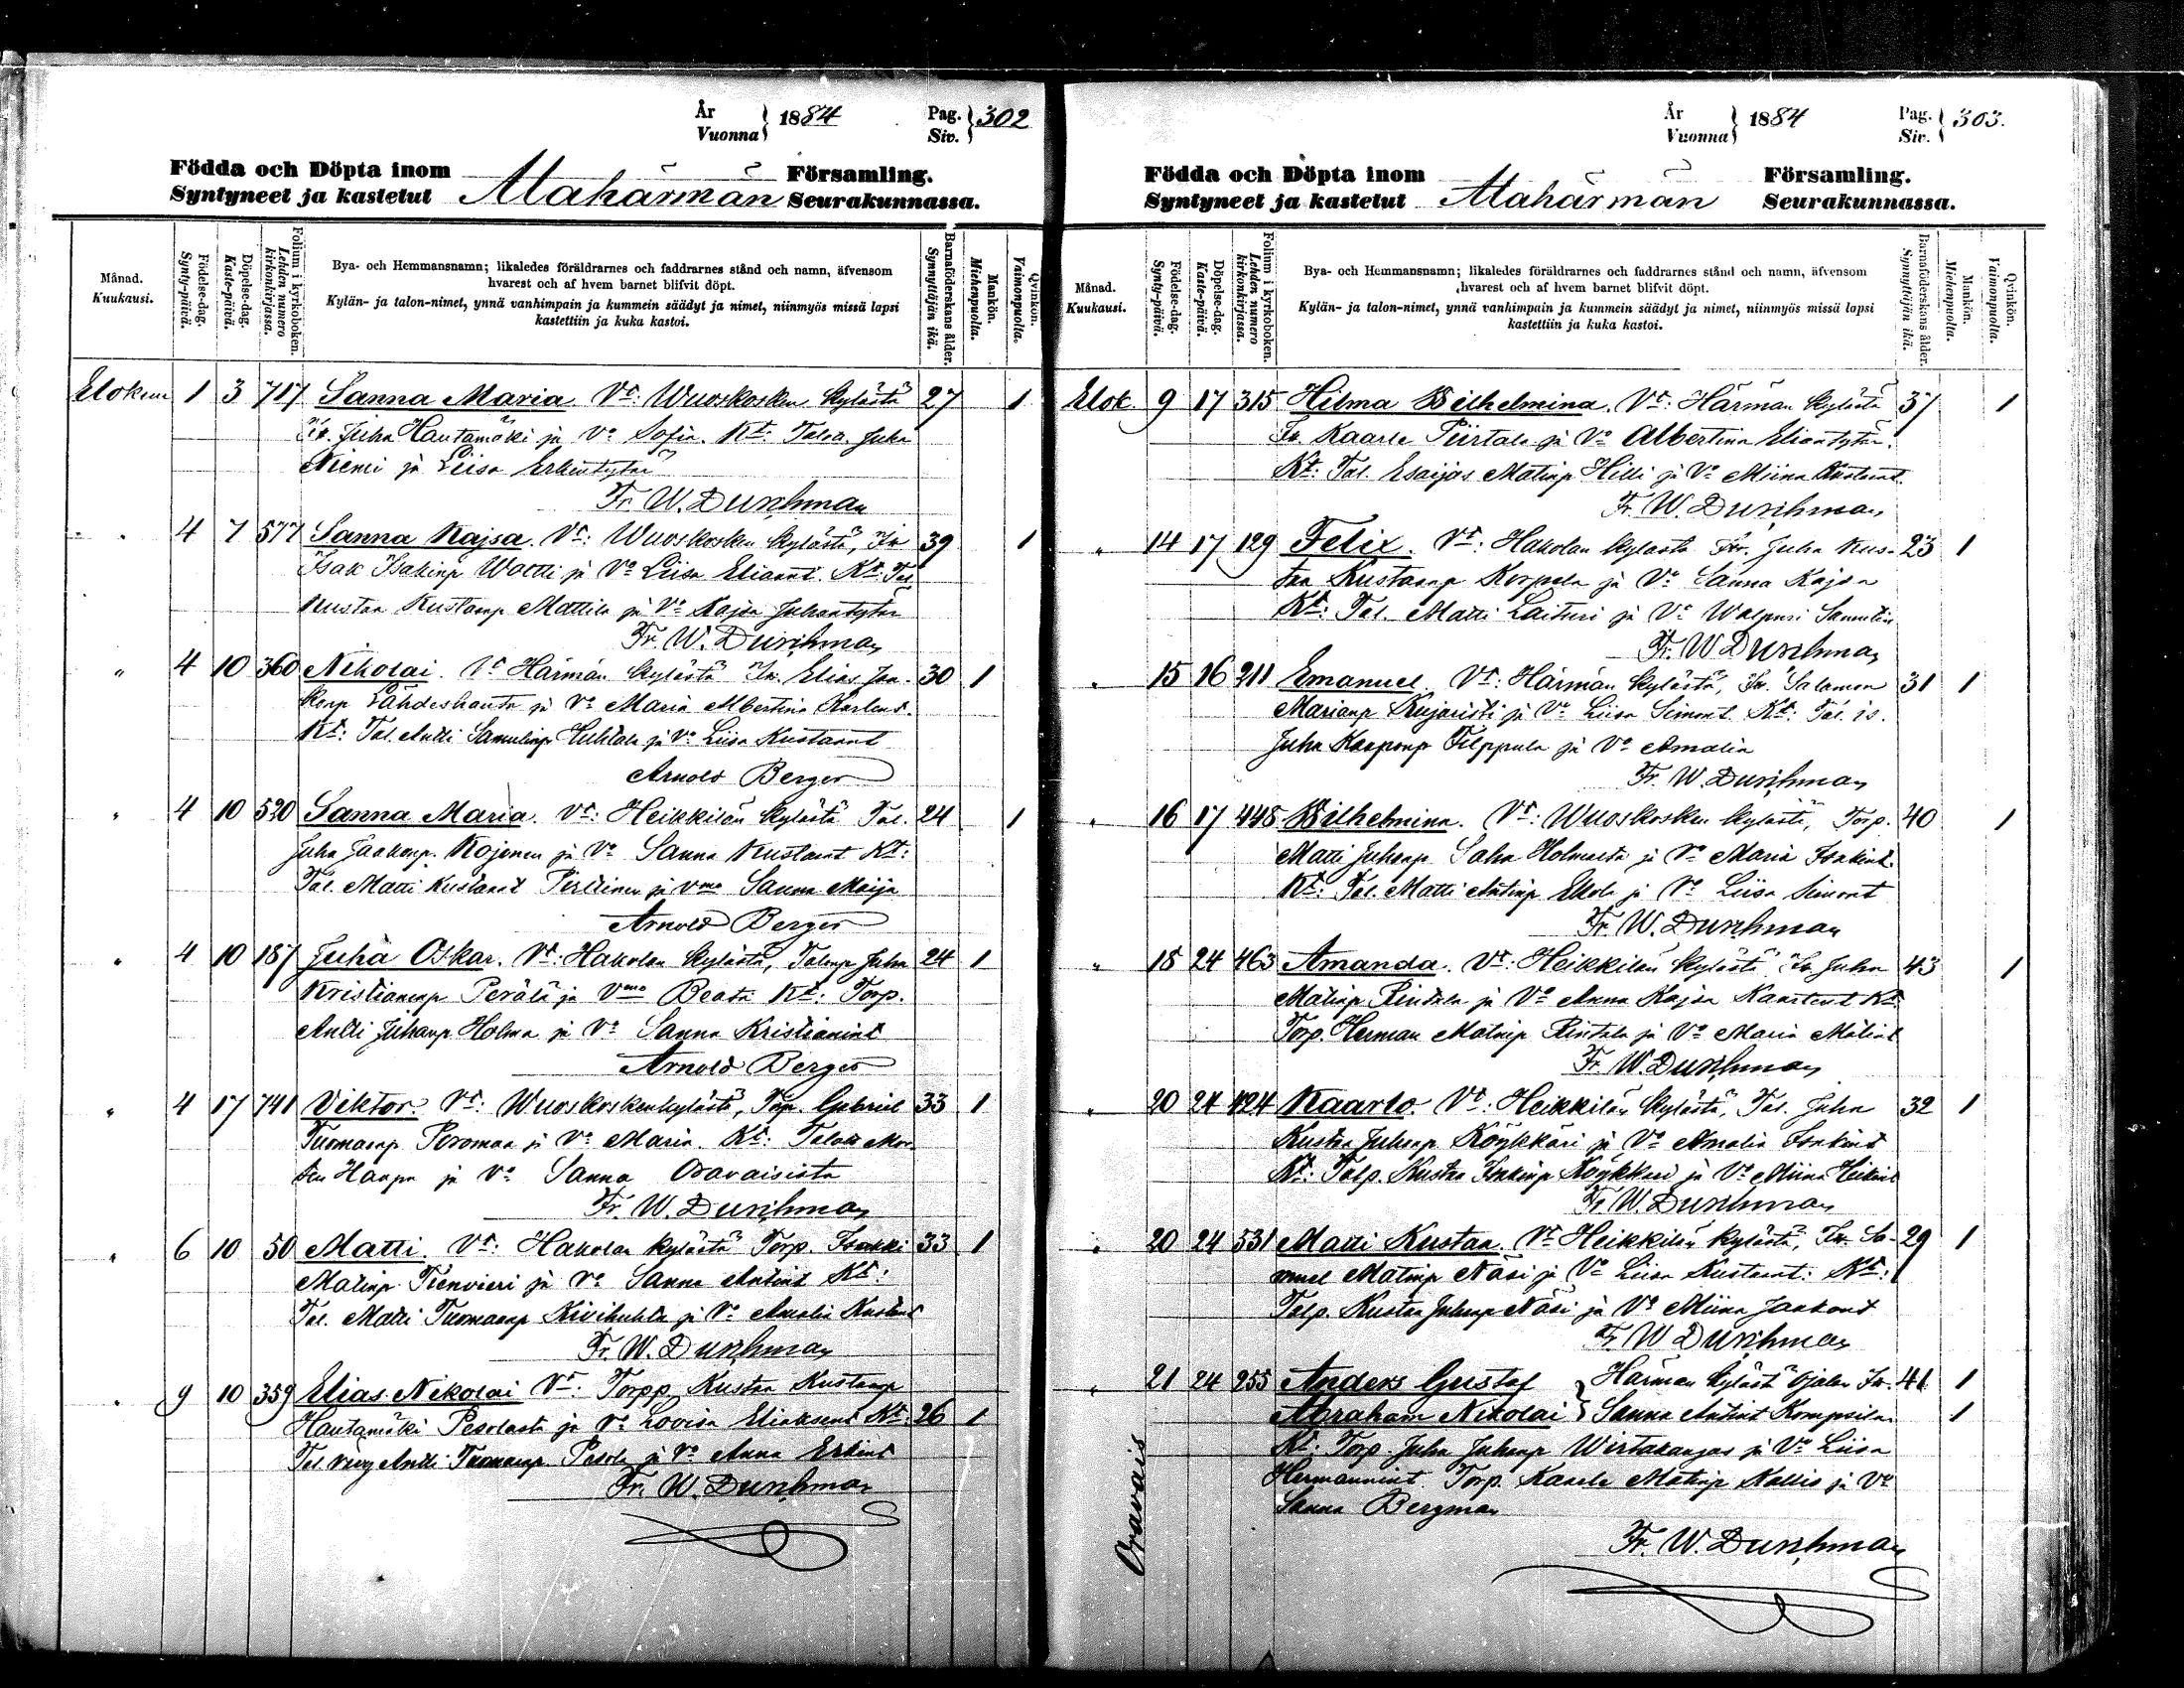 År
Vuonna } 1884
Pag.
Siv. } 302
Födda och Döpta inom Alahärmän Församling.
Syntyneet ja kastetut Seurakunnassa.
Månad.
Kuukausi.
Födelse-dag.
Synty-päivä.
Döpelse-dag.
Kaste-päivä.
Folium i kyrkoboken.
Lehden numero kirkonkirjassa.
Bya- och Hemmansnamn; likaledes föräldrarnes och faddrarnes stånd och namn, äfvensom
hvarest och af hvem barnet blifvit döpt.
Kylän- ja talon-nimet, ynnä vanhimpain ja kummein säädyt ja nimet, niinmyös missä lapsi
kastettiin ja kuka kastoi.
Barnaföderskans ålder.
Synnyttäjän ikä.
Mankön.
Miehenpuolta.
Qvinkön.
Vaimonpuolta.
Elokuu 1 3 717 Sanna Maria. Vt: Wuoskosken kylästä 27 1
Juha Hautamäki ja Vo Sofia. Kt: Juha
Niemi ja Liisa Erkintytär
Fr. W. Durchman
" 4 7 577 Sanna Kajsa. Vt: Wuoskosken kylästä, 39 1
Isak Isakinp Waetti ja Vo Liisa Eliaant. Kt: Tal
Kustaa Kustaanp Mattila ja Vo Kajsa Juhantytär
Fr. W. Durchman
" 4 10 360 Nikolai. Vt Härmän kylästä Elias Jaa- 30 1
konp Lähdeshauta ja Vo Maria Albertina Karlent.
Kt: Tal. Antti Samulinp Huhtala ja Vo Liisa Kustaant
Arnold Berger
" 4 10 520 Sanna Maria. Vt: Heikkilän kylästä Tal. 24 1
Juha Jaakonp. Kojonen ja Vo Sanna Kustaant Kt:
Tal. Matti Kustaant Perttinen ja vmo Sanna Maija
Arnold Berger
" 4 10 187 Juha Oskar. Vt: Hakolan kylästä, Juha 24 1
Kristianinp Perälä ja Vmo Beata Kt: Torp.
Antti Juhanp Holma ja Vo Sanna Kristianint
Arnold Berger
" 4 17 741 Viktor. Vt: Wuoskoskenkylästä, Torp. Gabriel 33 1
Tuomaanp Peromaa ja Vo Maria. Kt:
Haapa ja Vo Sanna Oravaisista
Fr. W. Durchman
" 6 10 50 Matti. Vt: Hakolan kylästä Torp. Isakki 33 1
Matinp Tienvieri ja Vo Sanna Antint Kt:
Tal. Matti Tuomaanp Kivihuhta ja Vo Amalia Kustant
Fr. W. Durchman
" 9 10 359 Elias Nikolai Vt: Torpp. Kustaa Kustaanp
Hautamäki Pesolasta ja Vo Lovisa Eliaksent Kt. 26 1
Tal. Antti Tuomaanp. Pesola ja Vo Anna Erkint
Fr. W. Durchman
År
Vuonna } 1884
Pag.
Siv. } 303.
Födda och Döpta inom Alahärmän Församling.
Syntyneet ja kastetut Seurakunnassa.
Månad.
Kuukausi.
Födelse-dag.
Synty-päivä.
Döpelse-dag.
Kaste-päivä.
Folium i kyrkoboken.
Lehden numero kirkonkirjassa.
Bya- och Hemmansnamn; likaledes föräldrarnes och faddrarnes stånd och namn, äfvensom
hvarest och af hvem barnet blifvit döpt.
Kylän- ja talon-nimet, ynnä vanhimpain ja kummein säädyt ja nimet, niinmyös missä lapsi
kastettiin ja kuka kastoi.
Barnaföderskans ålder.
Synnyttäjän ikä.
Mankön.
Miehenpuolta.
Qvinkön.
Vaimonpuolta.
Elok. 9 17 315 Hilma Wilhelmina. Vt: Härmän kylästä 37 1
Kaarle Piirtala ja Vo Albertina Eliantytär.
Kt: Tal. Esaijas Matinp Hilli ja Vo Miina Kustaant.
Fr. W. Durchman
" 14 17 129 Felix. Vt: Hakolan kylästä Juha Kus- 23 1
taa Kustaanp Korpela ja Vo Sanna Kajsa
Kt: Tal. Matti Laituri ja Vo Walpuri Samulin
Fr. W. Durchman
" 15 16 211 Emanuel. Vt: Härmän kylästä, Salomon 31 1
Marianp Kujaristi ja Vo Liisa Simont. Kt: Tal. is.
Juha Kaaponp Filppula ja Vo Amalia
Fr. W. Durchman
" 16 17 448 Wilhelmina. Vt: Wuoskosken kylästä, Torp. 40 1
Matti Juhanp Saha Holmasta ja Vo Maria Isakint.
Kt: Tal. Matti Antinp Ekola ja Vo Liisa Simont
Fr. W. Durchman
" 18 24 463 Amanda. Vt: Heikkilän kylästä Juha 43 1
Matinp Rintala ja Vo Anna Kajsa Kaarlent Kt.
Torp. Herman Matinp Rintala ja Vo Maria Matint
Fr. W. Durchman
" 20 24 424 Kaarlo. Vt: Heikkilän kylästä, Tal. Juha 32 1
Kustaa Juhanp Köykkäri ja Vo Amalia Isakint
Kt: Talp. Kustaa Isakinp Köykkäri ja Vo Miina Heikint
Fr. W. Durchman
" 20 24 531 Matti Kustaa. Vt: Heikkilän kylästä, Sa- 29 1
muel Matinp Näsi ja Vo Liisa Kustaant: Kt:
Talp. Kustaa Juhanp Näsi ja Vo Miina Jaakont
Fr. W. Durchman
" 21 24 255 Anders Gustaf } Härmän kylästä Ojalan 41 1
Abraham Nikolai } Sanna Antint Kompsila 1
Kt: Torp. Juha Juhanp Wirtakangas ja Vo Liisa
Hermannint. Torp. Kaarle Matinp Kallio ja Vo
Sanna Bergman
Oravais
Fr. W. Durchman